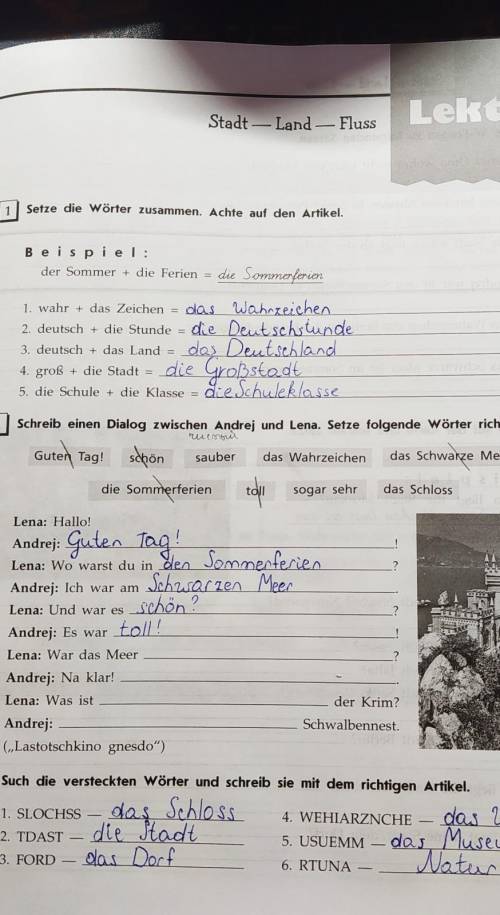 Lekt
Stadt — Land — Fluss
1 Setze die Wörter zusammen. Achte auf den Artikel.
Beispiel:
der Sommer + die Ferien = die Sommerferien
1. wahr + das Zeichen = das Wahrzeichen
2. deutsch + die Stunde = die Deutschstunde
3. deutsch + das Land = das Deutschland
4. groß + die Stadt = die Großstadt
5. die Schule + die Klasse = die Schuleklasse
Schreib einen Dialog zwischen Andrej und Lena. Setze folgende Wörter rich
Guten Tag! schön sauber das Wahrzeichen das Schwarze Me
die Sommerferien toll sogar sehr das Schloss
Lena: Hallo!
Andrej: Guten Tag! !
Lena: Wo warst du in den Sommerferien ?
Andrej: Ich war am Schwarzen Meer .
Lena: Und war es schön? ?
Andrej: Es war toll! !
Lena: War das Meer ?
Andrej: Na klar! .
Lena: Was ist der Krim?
Andrej: Schwalbennest.
(„Lastotschkino gnesdo“)
Such die versteckten Wörter und schreib sie mit dem richtigen Artikel.
1. SLOCHSS — das Schloss 4. WEHIARZNCHE — das W
2. TDAST — die Stadt 5. USUEMM — das Museu
3. FORD — das Dorf 6. RTUNA — Natur